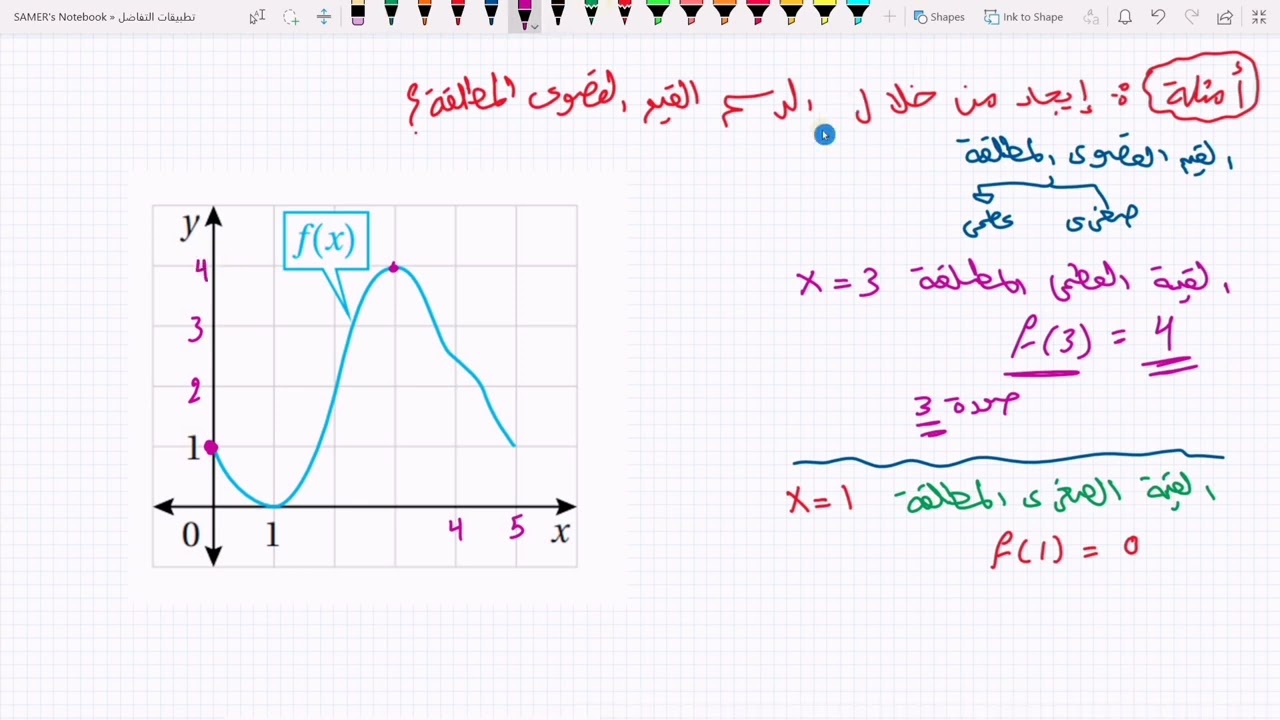 SAMER's Notebook » تطبيقات التفاضل
Shapes
Ink to Shape
أمثلة : إيجاد من خلال الرسم القيم القصوى المطلقة ؟
القيم القصوى المطلقة
صغرى
عظمى
القيمة العظمى المطلقة x = 3
f(3) = 4
3
القيمة الصغرى المطلقة x = 1
f(1) = 0
y
f(x)
4
3
2
1
0
1
4
5
x